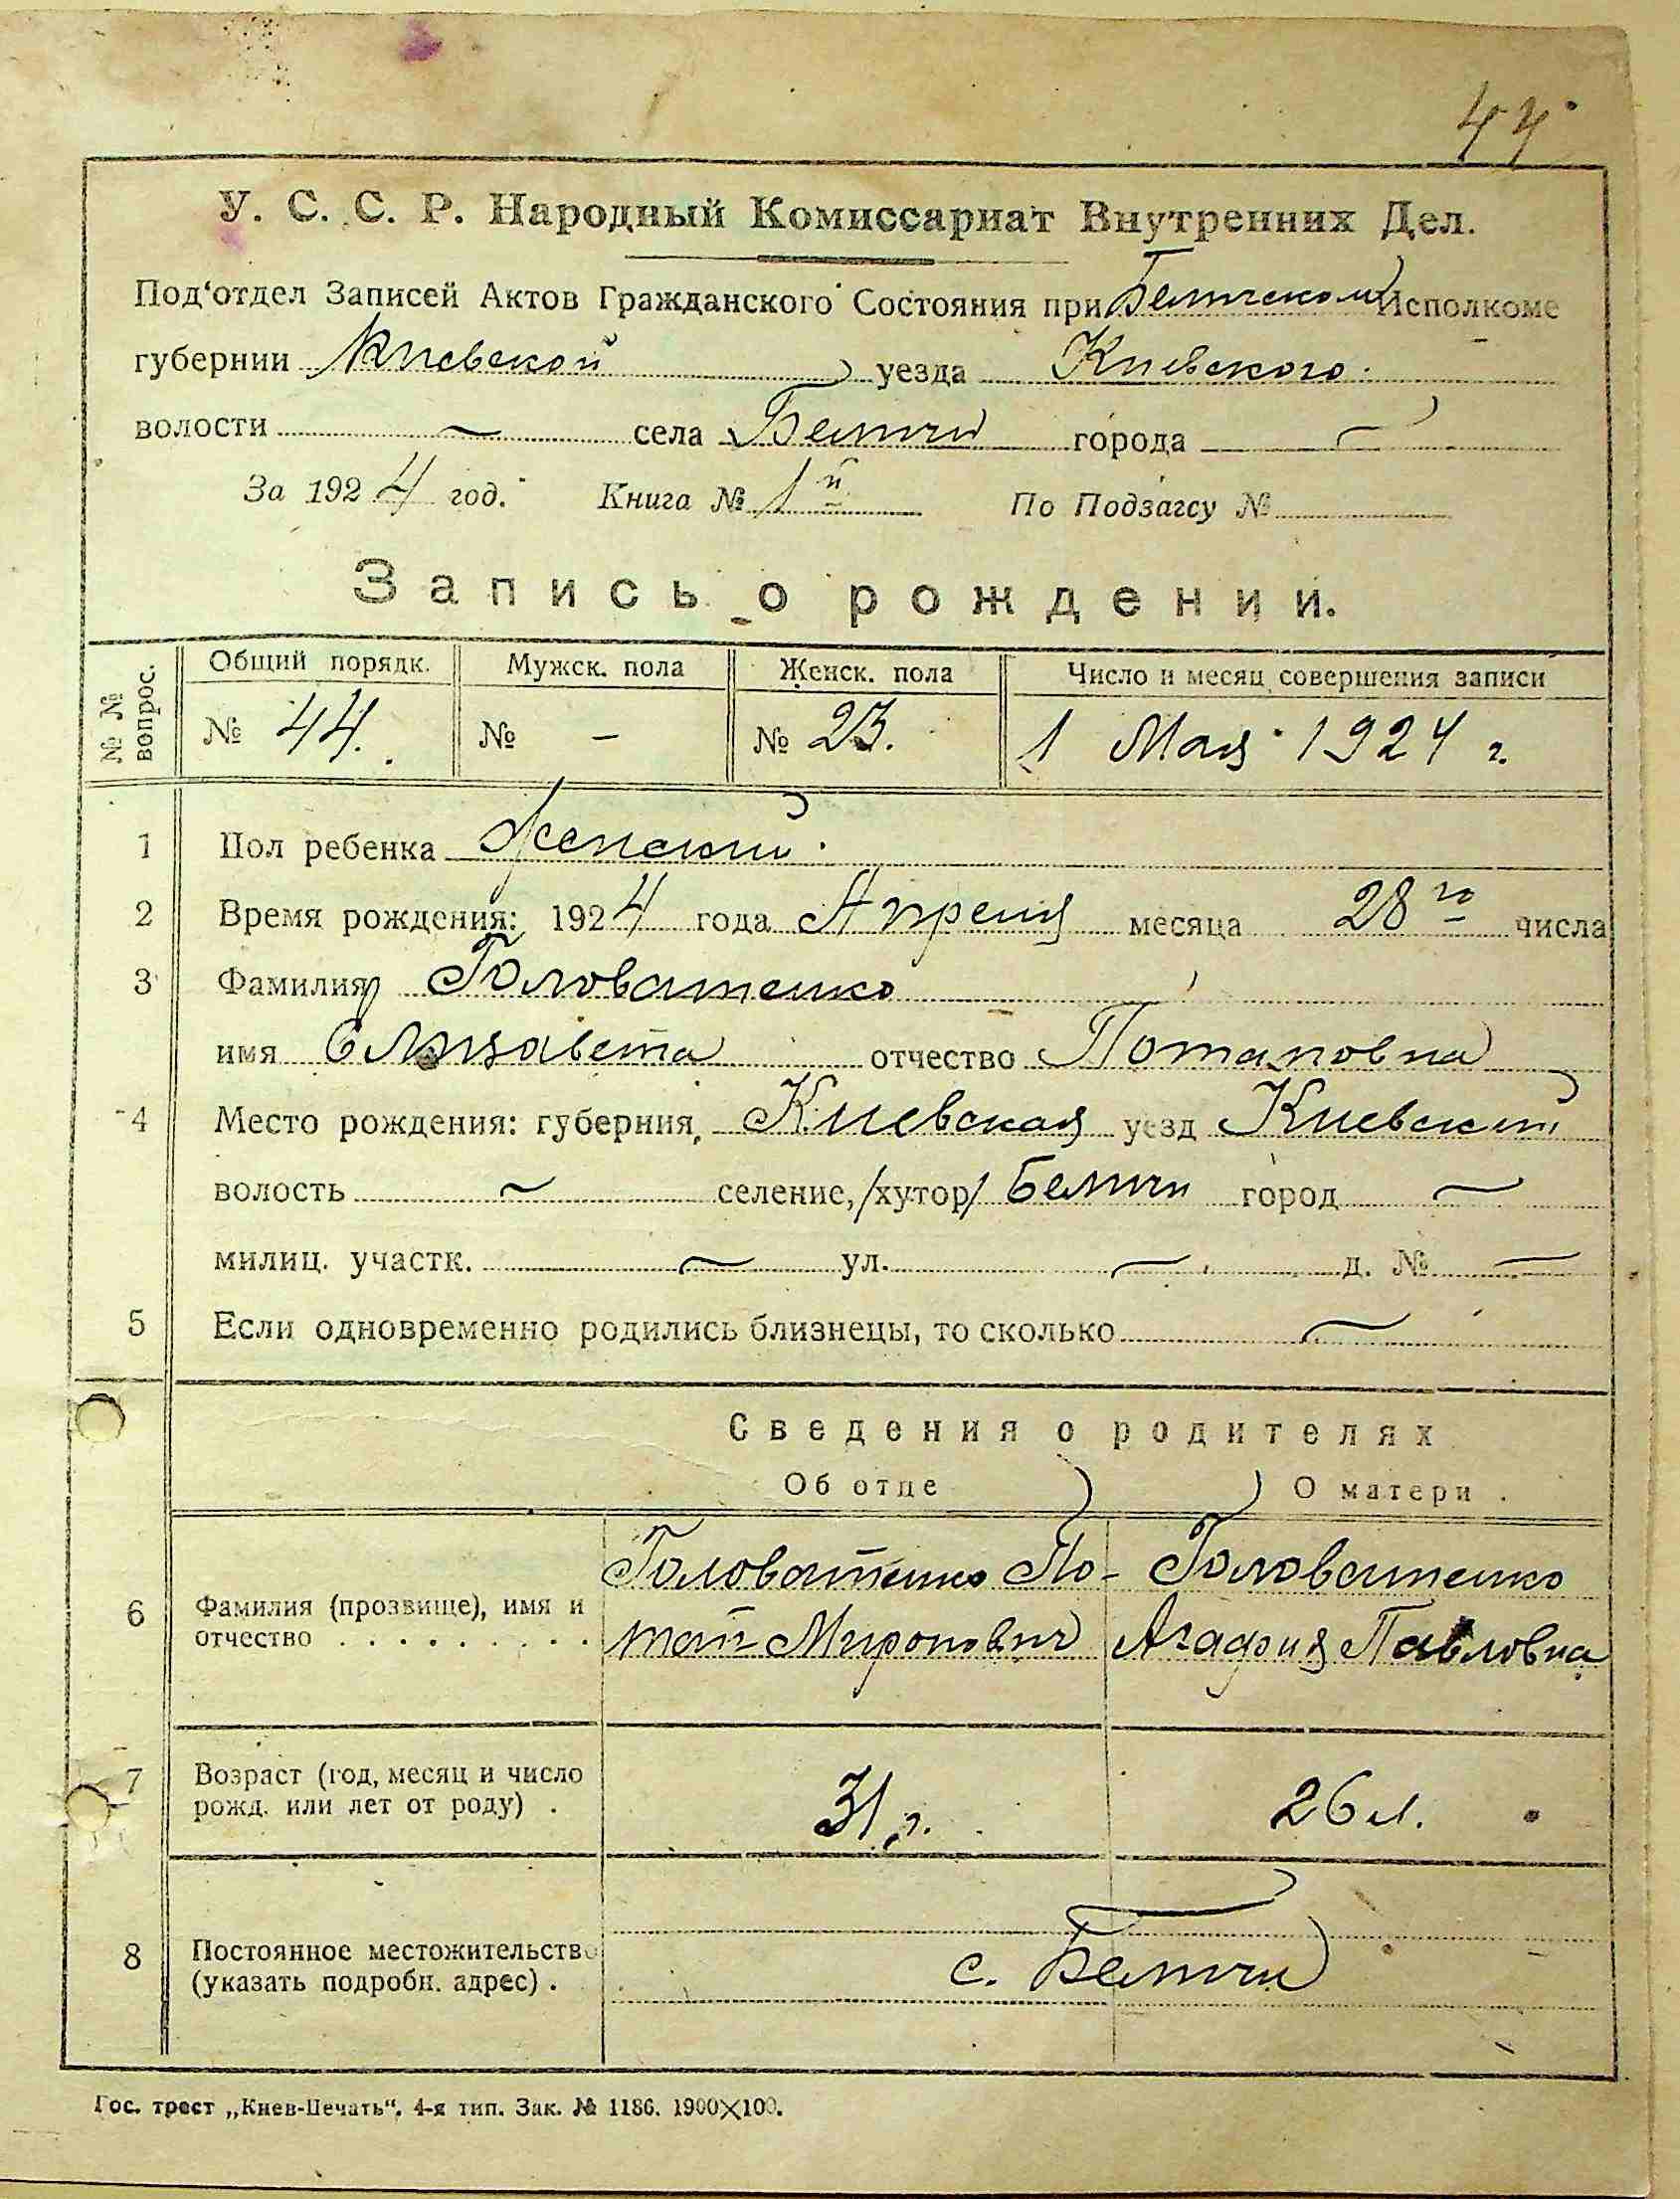 44
У. С. С. Р. Народный Комиссариат Внутренних Дел.
Под‘отдел Записей Актов Гражданского Состояния при Беличском Исполкоме
губернии Киевской уезда Киевского.
волости ~ села Беличи города ~
За 1924 год. Книга № 1й По Подзагсу №
Запись о рождении.
№ № вопрос. Общий порядк. Мужск. пола Женск. пола Число и месяц совершения записи
№ 44. № - № 23. 1 Мая 1924 г.
1 Пол ребенка Женский.
2 Время рождения: 1924 года Апреля месяца 28го числа
3 Фамилия Головатенко
имя Елизавета отчество Потаповна
4 Место рождения: губерния, Киевская уезд Киевский
волость ~ селение, /хутор/ Беличи город ~
милиц. участк. ~ ул. ~ д. № ~
5 Если одновременно родились близнецы, то сколько ~
Сведения о родителях
Об отце О матери.
6 Фамилия (прозвище), имя и отчество . . . . . . . . . .
Головатенко По-
тап Миронович
Головатенко
Агафия Павловна
7 Возраст (год, месяц и число
рожд. или лет от роду) .
31 г. 26 л.
8 Постоянное местожительство
(указать подробн. адрес) .
с. Беличи
Гос. трест „Киев-Печать“. 4-я тип. Зак. № 1186. 1900×100.